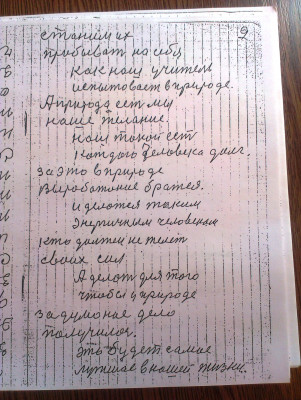 9
станим их
пробыват на себя
Как наш учитель
испытовает в природе.
А природа ест мы
наше желание.
Наш такой ест
Каждого Человека долг.
За это в природе
Выроботоние братся.
и делотся таким
Энергичным человеком
Кто должен не телят
своих сил
А делат для того
чтобы у природе
задумоное дело
получилос.
Это будет самое
лутшае в нашей жизни.